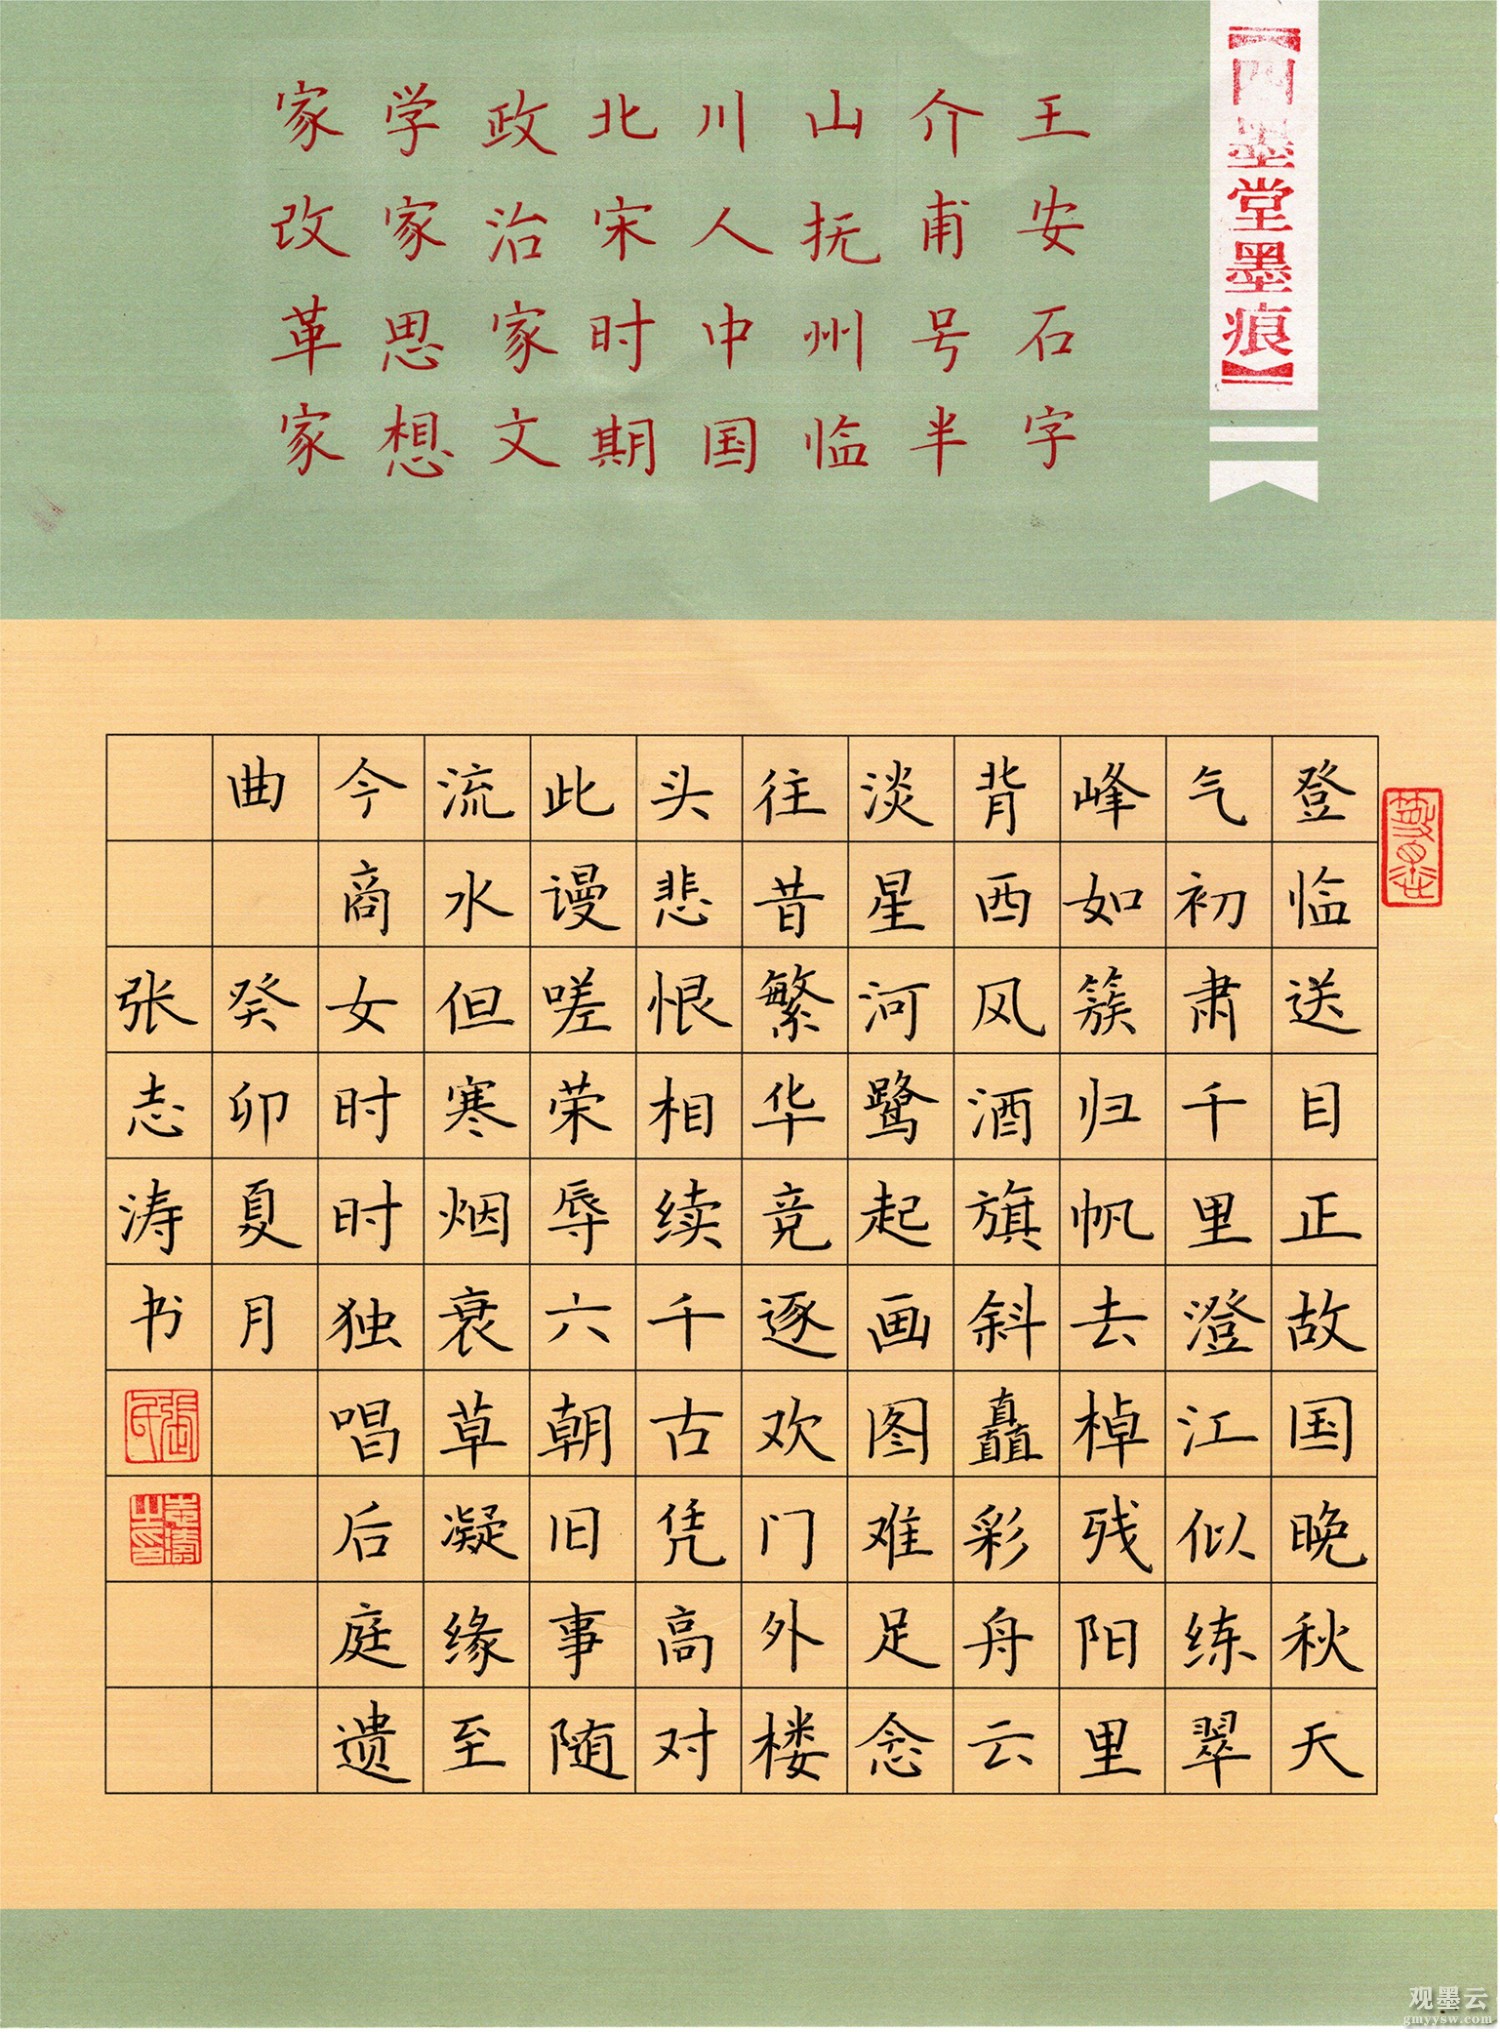 【四墨堂墨痕】
王安石字
介甫号半
山抚州临
川人中国
北宋时期
政治家文
学家思想
家改革家
登临送目正故国晚秋天
气初肃千里澄江似练翠
峰如簇归帆去棹残阳里
背西风酒旗斜矗彩舟云
淡星河鹭起画图难足念
往昔繁华竞逐欢门外楼
头悲恨相续千古凭高对
此谩嗟荣辱六朝旧事随
流水但寒烟衰草凝缘至
今商女时时独唱后庭遗
曲 癸卯夏月
张志涛书
张氏
志涛之印
观墨云
gmyysw.com